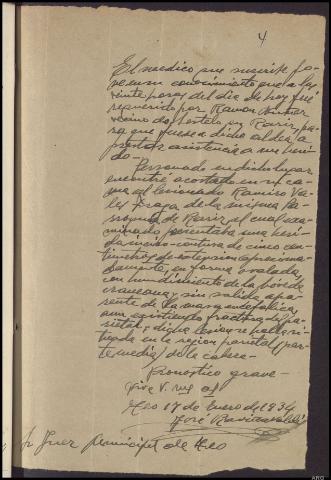 4
El medico que suscribe po-
ne en su conocimiento que a las
veinte horas del dia de hoy fué
requerido por Ramon
vecino de en Rariz pa-
ra que fuese a dicha aldea a
prestar asistencia a un heri-
do.-
Personado en dicho lugar
encontré acostado en su ca-
ma al lesionado Ramiro Va-
les Fraga de la misma Pa-
rroquia de Rariz, el cual exa-
minado presentaba una heri-
da inciso-contusa de cinco cen-
timetros de extension aproxima-
damente, en forma ovalada,
con hundimiento de la bóveda
craneana, sin salida apa-
rente de la masa encefálica,
aun existiendo fractura del pa-
rietal; dicha lesion se halla si-
tuada en la region parietal (par-
te media) de la cabeza-
Pronostico grave-
Vive V. m/ af
Teo 17 de Enero de 1934
José
Sr Juez Municipal de Teo